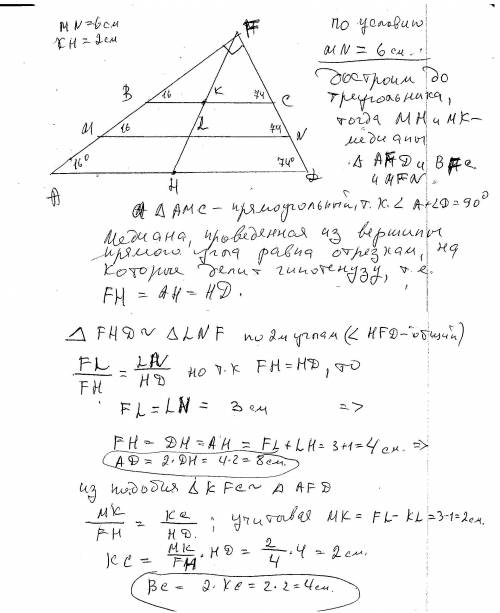 MN=6см
KH=2см
F
B
16
K
74
C
M
16
L
74
N
A
16°
H
74°
D
по условию
MN = 6 см.
достроим до
треугольника,
тогда MH и MK-
медианы
Δ AFD и BFC
и MFN
Δ AMC - прямоугольный, т.к. ∠ A+∠D=90°
Медиана, проведенная из вершины
прямого угла равна отрезкам, на
которые делит гипотенузу, т.е.
FH = AH = HD.
Δ FHD ~ Δ LNF по 2м углам (∠ HFD - общий)
FL/FH = LN/HD но т.к FH=HD, то
FL = LN = 3 см =>
FH = DH = AH = FL + LH = 3+1 = 4 см. =>
AD = 2·DH = 4·2 = 8см.
из подобия Δ KFC ~ Δ AFD
MK/FH = KC/HD ; учитывая MK = FL - KL = 3-1 = 2см.
KC = MK/FH · HD = 2/4 · 4 = 2 см.
BC = 2·KC = 2·2 = 4см.